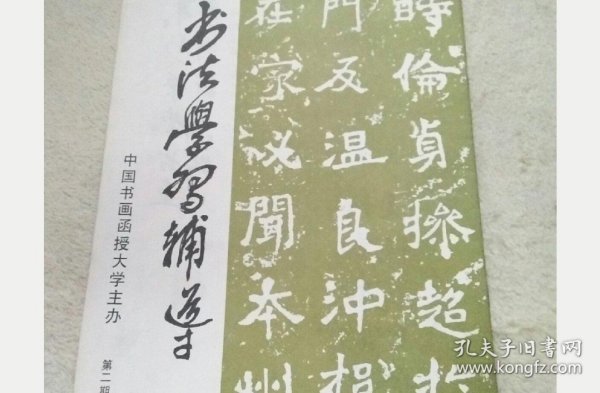 书法學習輔導
中国书画函授大学主办
第二期
時倫貞操超於
門及温良沖挹
在家必聞本州
孔夫子旧书网
www.kongfz.com